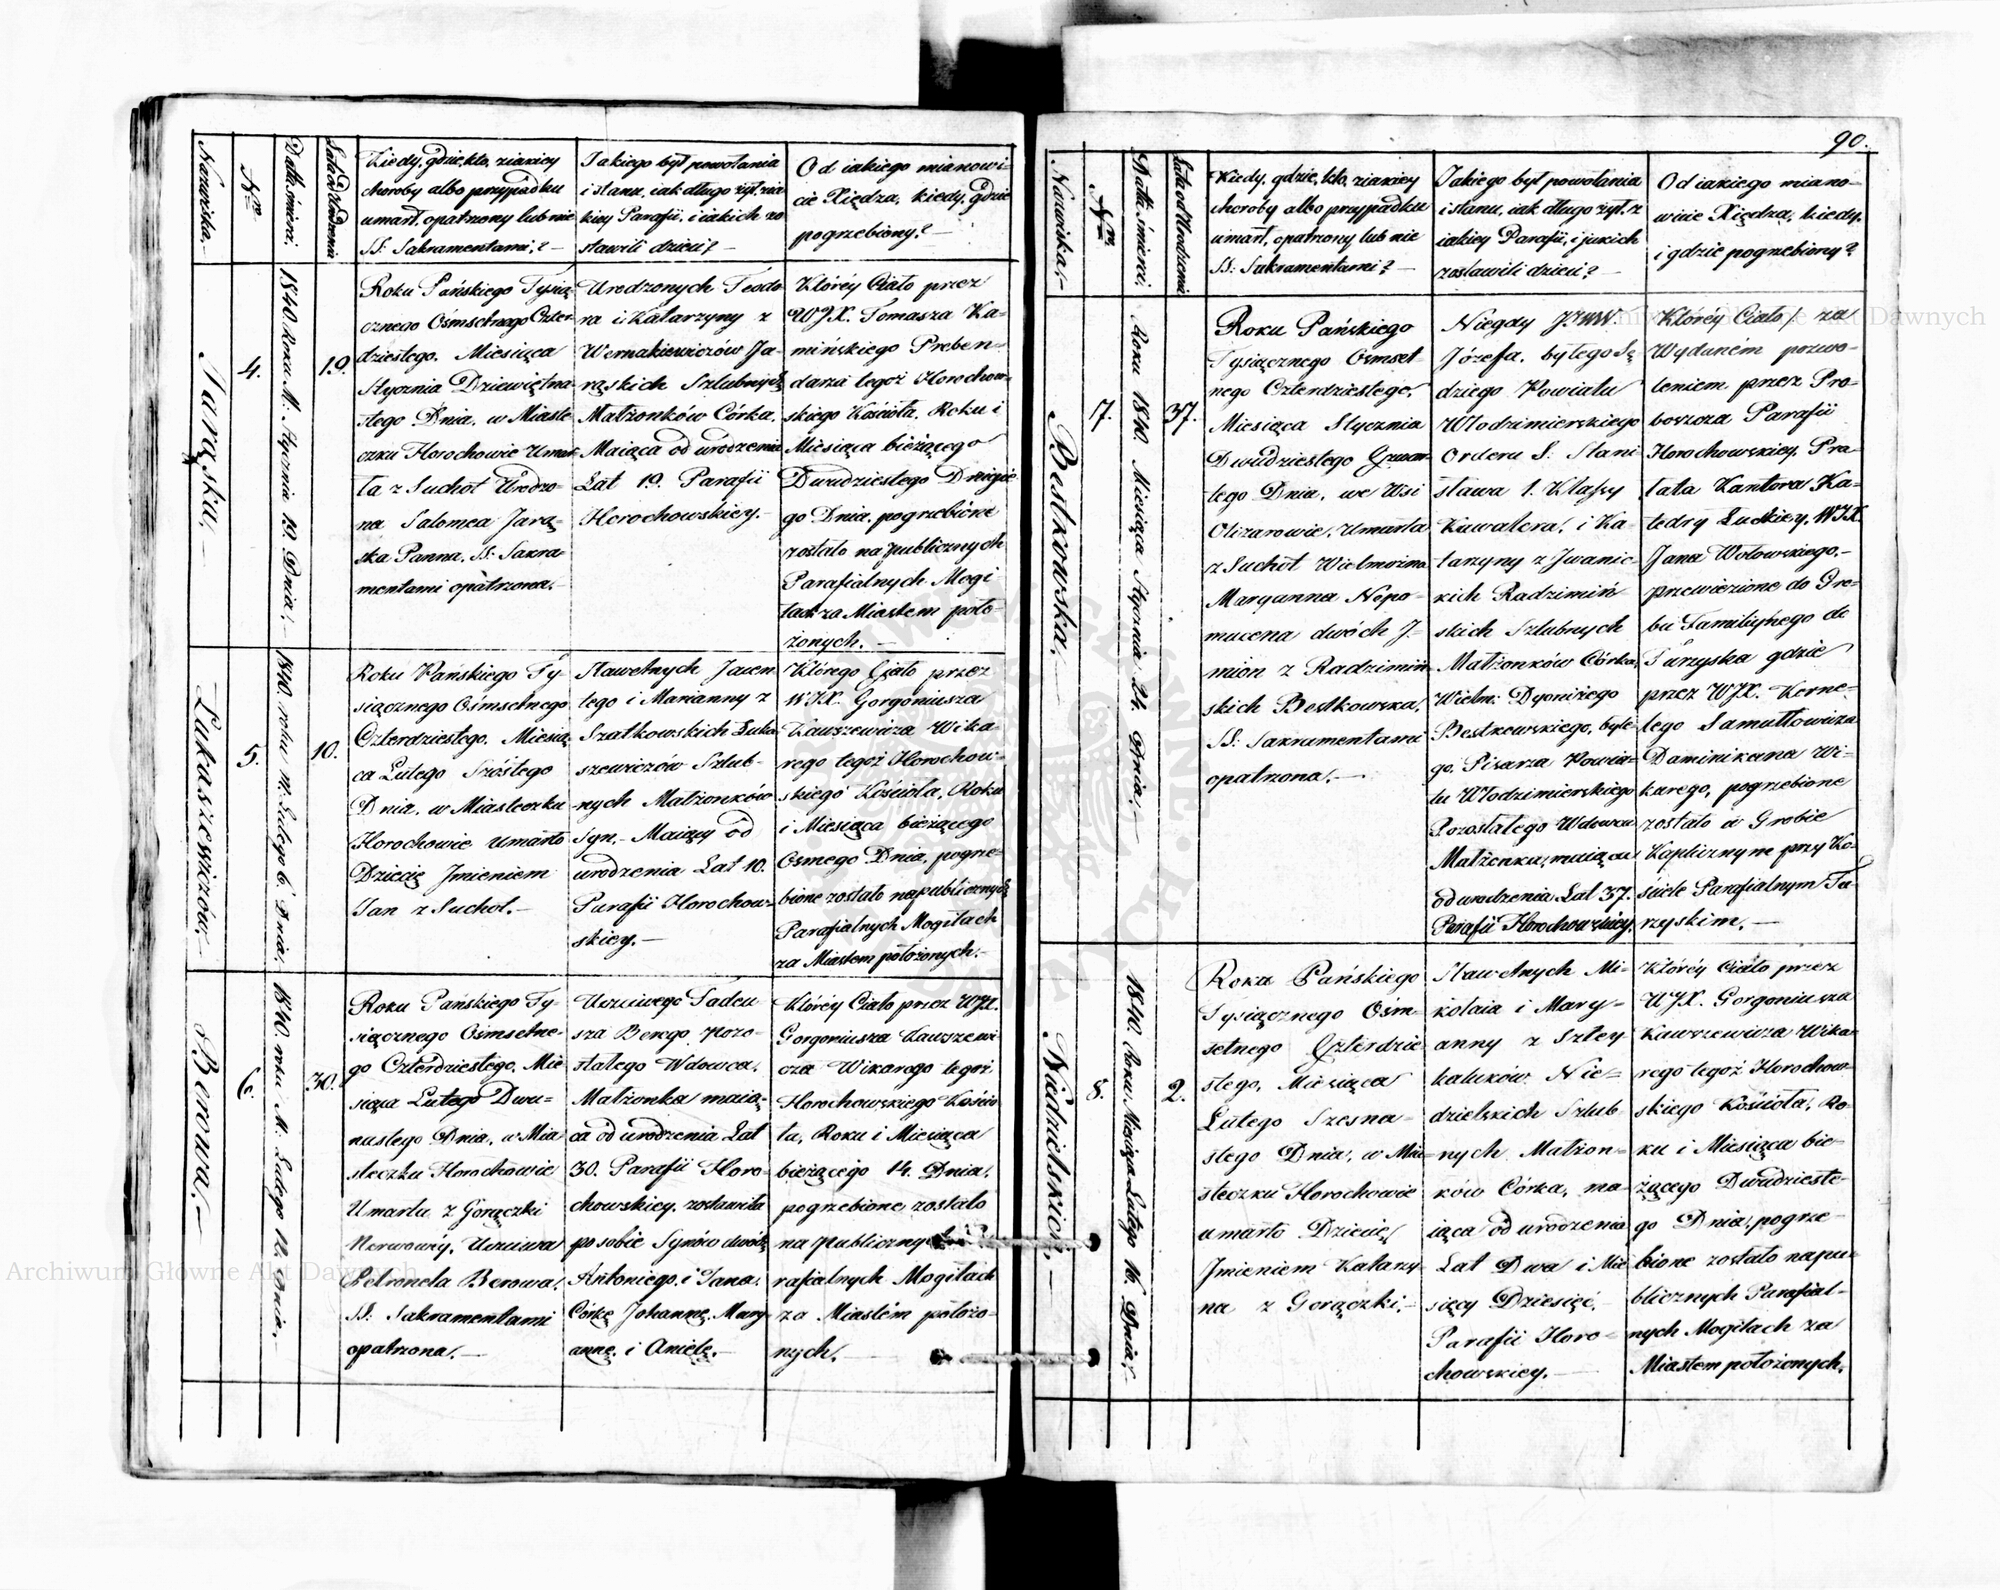 Nazwiska.
Nro
Data śmierci.
Lata od Urodzenia
Kiedy, gdzie, kto, z iakiey
choroby albo przypadku
umarł, opatrzony lub nie
SS: Sakramentami?—
Jakiego był powołania
i stanu, iak długo żył, z ia
kiey Parafii, i iakich zo
stawili dzieci?—
Od iakiego mianowi-
cie Xiędza, kiedy, gdzie
pogrzebiony?—
Jarąska.—
4.
1840. Roku M. Stycznia 19. Dnia.—
19.
Roku Pańskiego Tysią-
cznego Ośmsetnego Czter
dziestego. Miesiąca
Stycznia Dziewiętna
stego Dnia, w Miaste
czku Horochowie Umar
ła z Suchot Urodzo-
na Salomea Jarą-
ska Panna. SS: Sakra-
mentami opatrzona.—
Urodzonych Teodo
ra i Katarzyny z
Wernakiewiczów Ja-
rąskich Szlubnych
Małżonków Córka.
Maiąca od urodzenia
Lat 19. Parafii
Horochowskiey.—
Któréy Ciało przez
WJX. Tomasza Ka-
mińskiego Preben-
darza tegoż Horochow-
skiego Kościoła, Roku i
Miesiąca bieżącego
Dwudziestego Drugie
go Dnia, pogrzebione
zostało na publicznych
Parafialnych Mogi
łach za Miastem poło-
żonych.—
Łukaszewiczów.
5.
1840. roku M. Lutego 6. Dnia.
10.
Roku Pańskiego Ty-
siącznego Ośmsetnego
Czterdziestego. Miesią
ca Lutego Szóstego
Dnia, w Miasteczku
Horochowie umarło
Dziecię Jmieniem
Jan z Suchot.—
Sławetnych Jacen
tego i Marianny z
Szatkowskich Łuka
szewiczów Szlub-
nych Małżonków
Syn,— Maiący od
urodzenia Lat 10.
Parafii Horochow-
skiey.—
Którego Ciało przez
WJX. Gorgoniusza
Kawszewicza Wika-
rego tegoż Horochow-
skiego Kościoła, Roku
i Miesiąca bieżącego
Osmego Dnia, pogrze-
bione zostało na publicznych
Parafialnych Mogiłach
za Miastem położonych.—
Berowa.—
6.
1840 roku M. Lutego 12. Dnia.—
30.
Roku Pańskiego Ty-
siącznego Ośmsetne-
go Czterdziestego. Mie
siąca Lutego Dwu-
nastego Dnia, w Mia
steczku Horochowie
Umarła z Gorączki
Nerwowéy, Uczciwa
Petronela Berowa.
SS: Sakramentami
opatrzona.—
Uczciwego Tadeu
sza Berego pozo-
stałego Wdowca.
Małżonka maią-
ca od urodzenia Lat
30. Parafii Horo-
chowskiey, zostawiła
po sobie Synów dwóch
Antoniego i Jana.
Córkę Johannę, Mary-
annę i Anielę.—
Któréy Ciało przez WJX.
Gorgoniusza Kawszewi
cza Wikarego tegoż
Horochowskiego Kościo
ła, Roku i Miesiąca
bieżącego 14. Dnia,
pogrzebione zostało
na publicznych
rafialnych Mogiłach
za Miastém położo-
nych.—
90.
Nazwiska.—
Nro
Data śmierci.
Lata od Urodzenia
Kiedy, gdzie, kto, z iakiey
choroby albo przypadku
umarł, opatrzony lub nie
SS: Sakramentami?—
Jakiego był powołania
i stanu, iak długo żył, z
iakiey Parafii, i jakich
zostawili dzieci?—
Od iakiego miano-
wicie Xiędza, kiedy,
i gdzie pogrzebiony?
Bestkowska.
7.
Roku 1840. Miesiąca Stycznia 24. Dnia.—
37.
Roku Pańskiego
Tysiącznego Osmset-
nego Czterdziestego,
Miesiąca Stycznia
Dwudziestego Czwar-
tego Dnia, we Wsi
Olizarowie, Umarła
z Suchot Wielmożna
Maryanna Nepo-
mucena dwóch J-
mion z Radzimiń
skich Bestkowska,
SS: Sakramentami
opatrzona.—
Niegdy JWW.
Józefa, byłego Sę
dziego Powiatu
Włodzimierskiego
Orderu S. Stani
sława 1. Klassy
Kawalera, i Ka-
tarzyny z Jwanic-
kich Radzimiń
skich Szlubnych
Małżonków Córka,
Wielm: Dyonizego
Bestkowskiego, byłe
go, Pisarza Powia-
tu Włodzimierskiego
Pozostałego Wdowca
Małżonka, maiąca
od urodzenia Lat 37.
Parafii Horochowskiey.
Któréy Ciało, za
Wydaném pozwo-
leniem przez Pro-
boszcza Parafii
Horochowskiey, Pra-
łata Kantora Ka-
tedry Łuckiey, WJX.
Jana Wołowskiego.—
przewiezione do Gro-
bu Familiynego do
Turzyska gdzie
przez WJX. Korne-
lego Samułłowicza
Dominikana Wi-
karego, pogrzebione
zostało w Grobie
Kaplicznym przy Ko-
ściele Parafialnym Tu-
rzyskim.—
Niedzielskich.—
8.
1840. Roku Miesiąca Lutego 16. Dnia.
2.
Roku Pańskiego
Tysiącznego Ośm-
setnego Czterdzie
stego, Miesiąca
Lutego Szesna-
stego Dnia, w Mia-
steczku Horochowie
umarło Dziecię
Jmieniem Katarzy
na z Gorączki.—
Sławetnych Mi-
kołaia i Mary-
anny z Szley
kaluków Nie-
dzielskich Szlub-
nych Małżon-
ków Córka, ma
iąca od urodzenia
Lat Dwa i Mie
sięcy Dziesięć.—
Parafii Horo-
chowskiey.—
Któréy Ciało przez
WJX. Gorgoniusza
Kawszewicza Wika-
rego tegoż Horochow-
skiego Kościoła, Ro-
ku i Miesiąca bie-
żącego Dwudzieste-
go Dnia, pogrze-
bione zostało na pu-
blicznych Parafial-
nych Mogiłach za
Miastem położonych.
Archiwum Główne Akt Dawnych